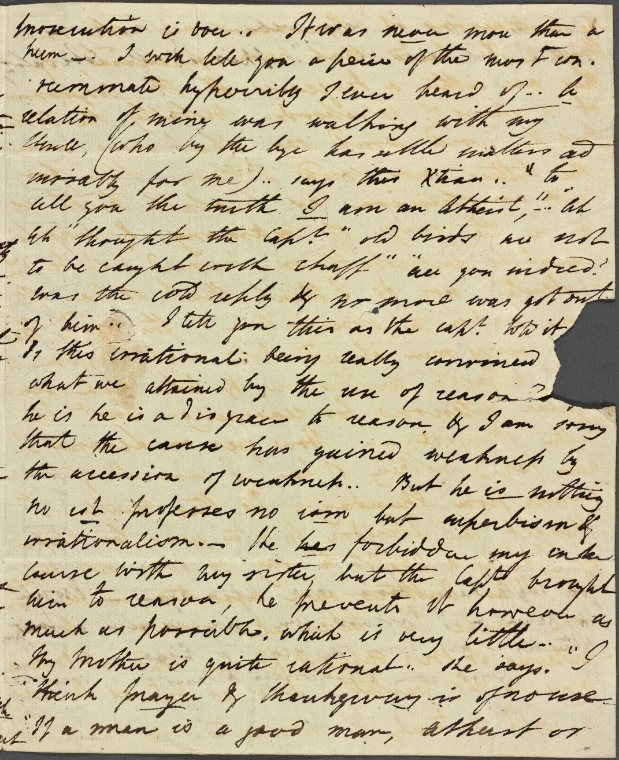 Prosecution is over.. It was never more than a
hum —. I will tell you a peice of the most con-
summate hypocrisy I ever heard of.. A
relation of mine was walking with my
Uncle, (who by the bye has settle matters ad
mirably for me).. says this Xtian.. "to
tell you the truth I am an Atheist,".. "Ah
ah" thought the Capt. "old birds are not
to be caught with chaff" "are you indeed?
was the cold reply & no more was got out
of him.. I tell you this as the capt. told it
Is this irrational being really convinced
what we attained by the use of reason?
he is he is a disgrace to reason, & I am sorry
that the cause has gained weakness by
the accession of weakness.. But he is nothing
no ist professes no ism but superbism &
irrationalism.— He has forbidden my inter
course with my sister, but the Capt. brought
him to reason, he prevents it however as
much as possible, which is very little..
My Mother is quite rational.. she says. "I
think prayer & thanksgiving is of no use
"If a man is a good man, atheist or